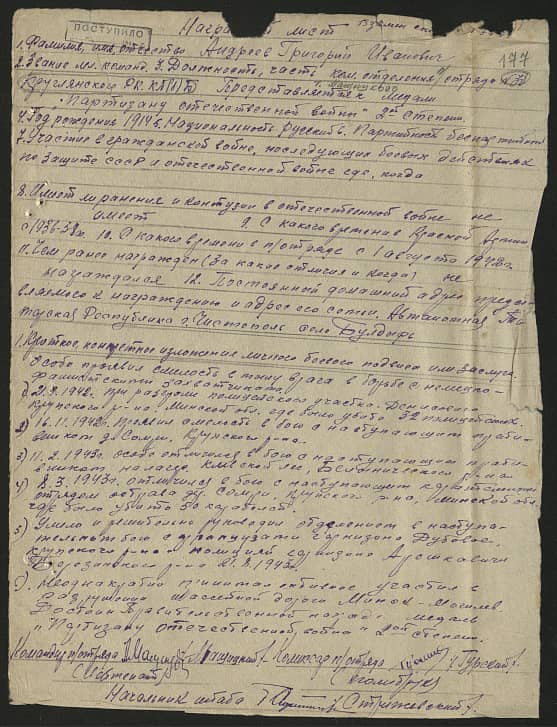 ПОСТУПИЛО
Наградной лист
177
1. Фамилия, имя, отчество Андреев Григорий Иванович
2. Звание мл. команд. 3. Должность, часть ком. отделения п/отряда
Круглянского РК КП(б)Б Представляется к Медали
"Партизану отечественной войны" 2ой степени.
4. Год рождения 1914 г. Национальность Русский 6. Партийность беспартийный
7. Участие в гражданской войне, последующих боевых действиях
по защите СССР и отечественной войне где, когда
8. Имеет ли ранения и контузии в отечественной войне не
имеет 9. С какого времени в Красной Армии
с 1936-38 г. 10. С какого времени в п/отряде с 1 августа 1942 г.
11. Чем ранее награжден (за какие отличия и когда) не
награждался 12. Постоянный домашний адрес представ-
вляемого к награждению и адрес его семьи. Автономная Та-
тарская Республика г. Чистополь село
1. Краткое конкретное изложение личного боевого подвига или заслуги.
Особо проявил смелость в тылу врага в борьбе с немецко-
фашистскими захватчиками.
1) 21.9.1942 г. При разгроме полицейского участка
Крупского р-на Минской обл. где было убито 32 полицейских.
2) 16.11.1942 г. Проявил смелость в бою с наступающим проти-
вником д. Сомры, Крупского р-на.
3) 11.2.1943 г. особо отличился в бою с наступающим проти-
вником на лагерь лес, Белыничского р-на
4) 8.3.1943 г. отличился в бою с наступающим карательным
отрядом острова д. Сомры, Крупского р-на, Минской обл.
где было убито карателей.
5) Умело и решительно руководил отделением в наступа-
тельном бою с гарнизона
Крупского р-на и полицией гарнизона
Березинского р-на 1943 г.
6) Неоднократно принимал активное участие в
разрушении шоссейной дороги Минск-Могилев.
Достоин Правительственной награды медаль
"Партизану отечественной войны" 2ой степени.
Командир п/отряда Комиссар п/отряда /Гурский/
Сержант
Начальник штаба /Стрижевский/